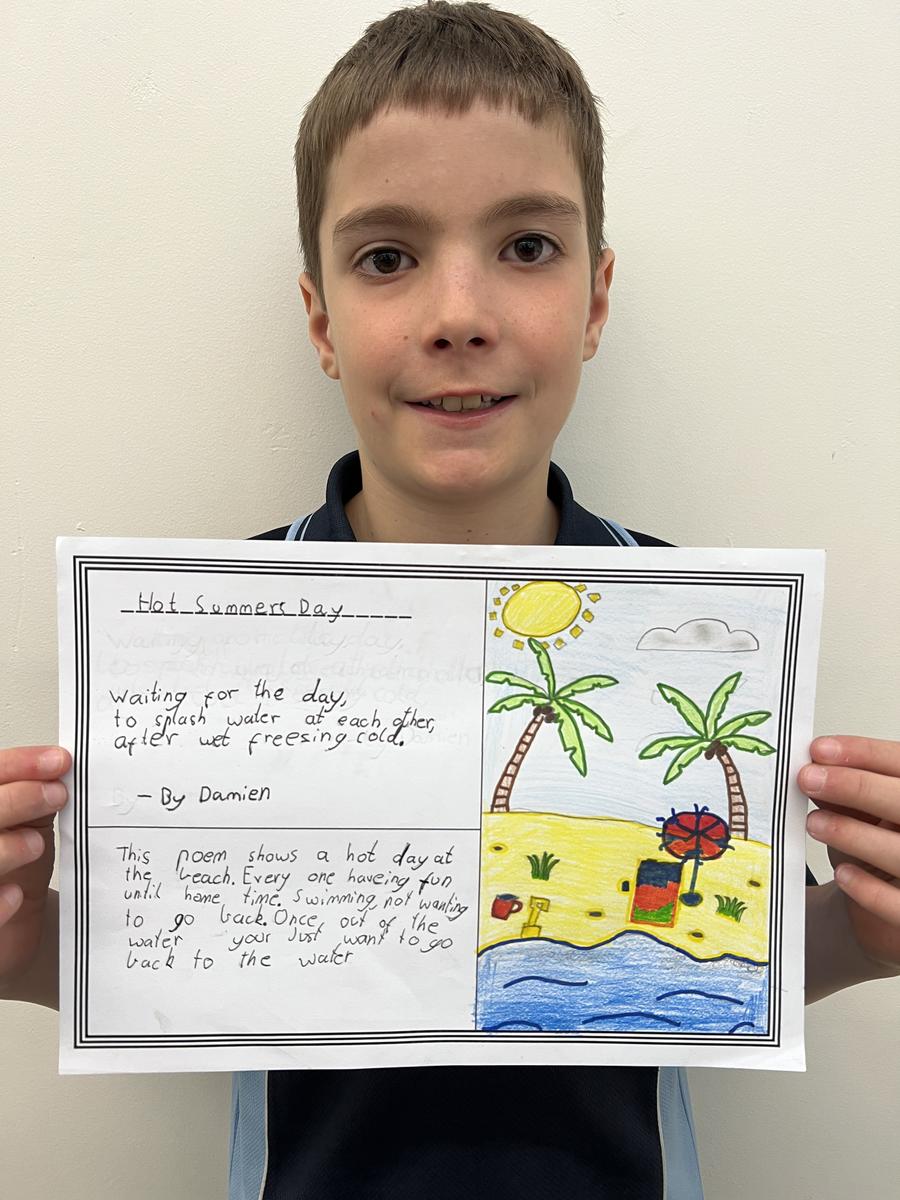 Hot Summers Day
Waiting for the day,
to splash water at each other,
after wet freesing cold.
- By Damien
This poem shows a hot day at
the beach. Every one haveing fun
until home time. Swimming, not wanting
to go back. Once, out of the
water your Just want to go
back to the water